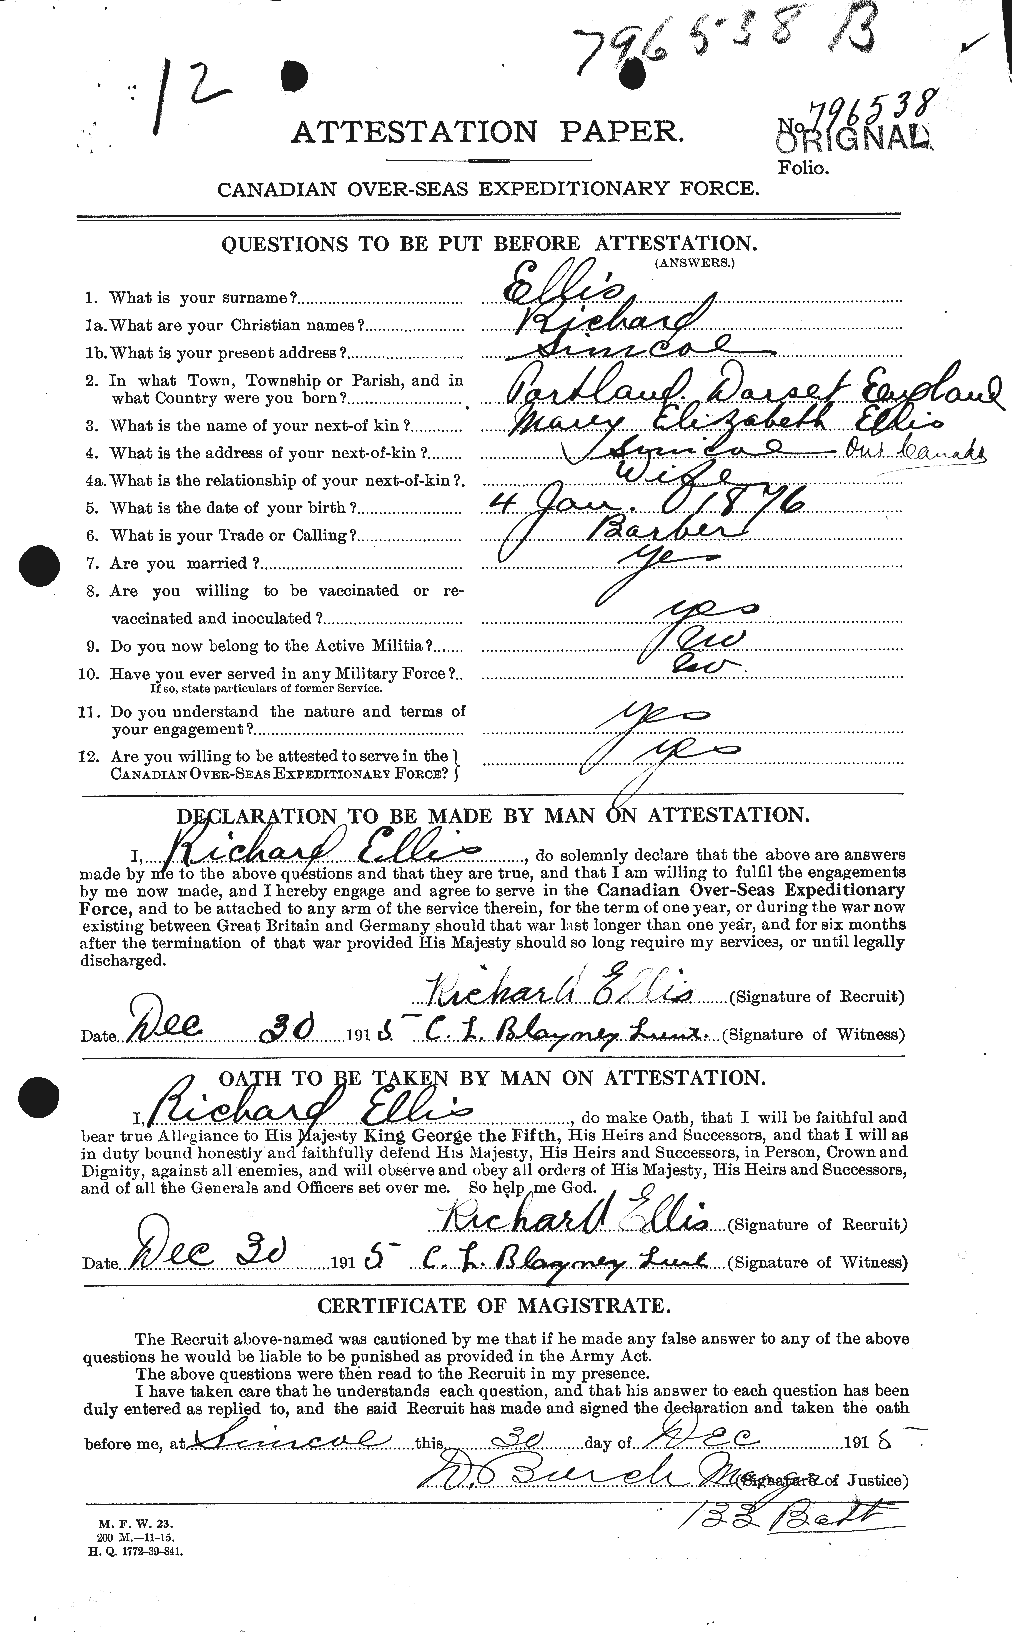 796538 B
12
No. 796538
ATTESTATION PAPER.
ORIGINAL
Folio.
CANADIAN OVER-SEAS EXPEDITIONARY FORCE.
QUESTIONS TO BE PUT BEFORE ATTESTATION.
(ANSWERS.)
1. What is your surname? Ellis
1a. What are your Christian names? Richard
1b. What is your present address? Simcoe
2. In what Town, Township or Parish, and in
what Country were you born? Portland. Dorset England
3. What is the name of your next-of kin? Mary Elizabeth Ellis
4. What is the address of your next-of-kin? Simcoe Ont Canada
4a. What is the relationship of your next-of-kin? Wife
5. What is the date of your birth? 4 Jan. 1876
6. What is your Trade or Calling? Barber
7. Are you married? yes
8. Are you willing to be vaccinated or re-
vaccinated and inoculated? yes
9. Do you now belong to the Active Militia? no
10. Have you ever served in any Military Force? no.
If so, state particulars of former Service.
11. Do you understand the nature and terms of
your engagement? yes
12. Are you willing to be attested to serve in the
CANADIAN OVER-SEAS EXPEDITIONARY FORCE? yes
DECLARATION TO BE MADE BY MAN ON ATTESTATION.
I, Richard Ellis, do solemnly declare that the above are answers
made by me to the above questions and that they are true, and that I am willing to fulfil the engagements
by me now made, and I hereby engage and agree to serve in the Canadian Over-Seas Expeditionary
Force, and to be attached to any arm of the service therein, for the term of one year, or during the war now
existing between Great Britain and Germany should that war last longer than one year, and for six months
after the termination of that war provided His Majesty should so long require my services, or until legally
discharged.
Richard Ellis (Signature of Recruit)
Date Dec 30 1915 C. L. Blayney Lieut. (Signature of Witness)
OATH TO BE TAKEN BY MAN ON ATTESTATION.
I, Richard Ellis, do make Oath, that I will be faithful and
bear true Allegiance to His Majesty King George the Fifth, His Heirs and Successors, and that I will as
in duty bound honestly and faithfully defend His Majesty, His Heirs and Successors, in Person, Crown and
Dignity, against all enemies, and will observe and obey all orders of His Majesty, His Heirs and Successors,
and of all the Generals and Officers set over me. So help me God.
Richard Ellis (Signature of Recruit)
Date Dec 30 1915 C. L. Blayney Lieut (Signature of Witness)
CERTIFICATE OF MAGISTRATE.
The Recruit above-named was cautioned by me that if he made any false answer to any of the above
questions he would be liable to be punished as provided in the Army Act.
The above questions were then read to the Recruit in my presence.
I have taken care that he understands each question, and that his answer to each question has been
duly entered as replied to, and the said Recruit has made and signed the declaration and taken the oath
before me, at Simcoe this 30 day of Dec 1915
D. Burch (Signature of Justice)
133 Batt
M. F. W. 23.
200 M.—11-15.
H. Q. 1772-39-841.